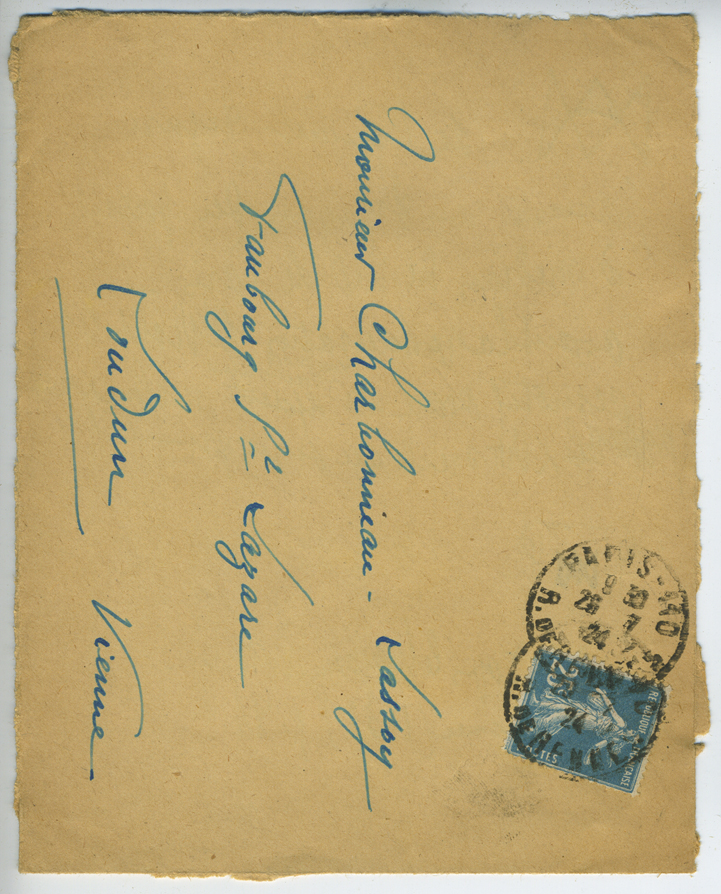 Monsieur Charbonneau-Lassay
Faubourg St Lazare
Loudun Vienne
PARIS-110
26 7
24
R. DE RENNES
REPUBLIQUE FRANÇAISE
25